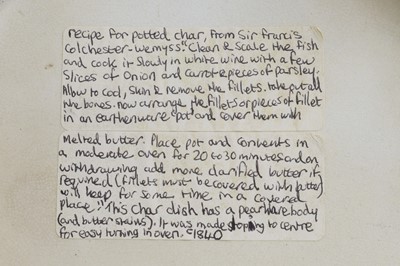 recipe for potted char, from Sir Francis
Colchester-Wemyss. "Clean & Scale the fish
and cook it slowly in white wine with a few
slices of onion and carrot & pieces of parsley.
Allow to cool, skin & remove the fillets. take out all
the bones. now arrange the fillets or pieces of fillet
in an earthenware pot and cover them with
Melted butter. Place pot and contents in
a moderate oven for 20 to 30 minutes and on
withdrawing add more clarified butter if
required (fillets must be covered with butter)
will keep for some time in a covered
place". This Char dish has a pearlware body
(and butter stains). It was made to centre
for easy turning in oven. C1840